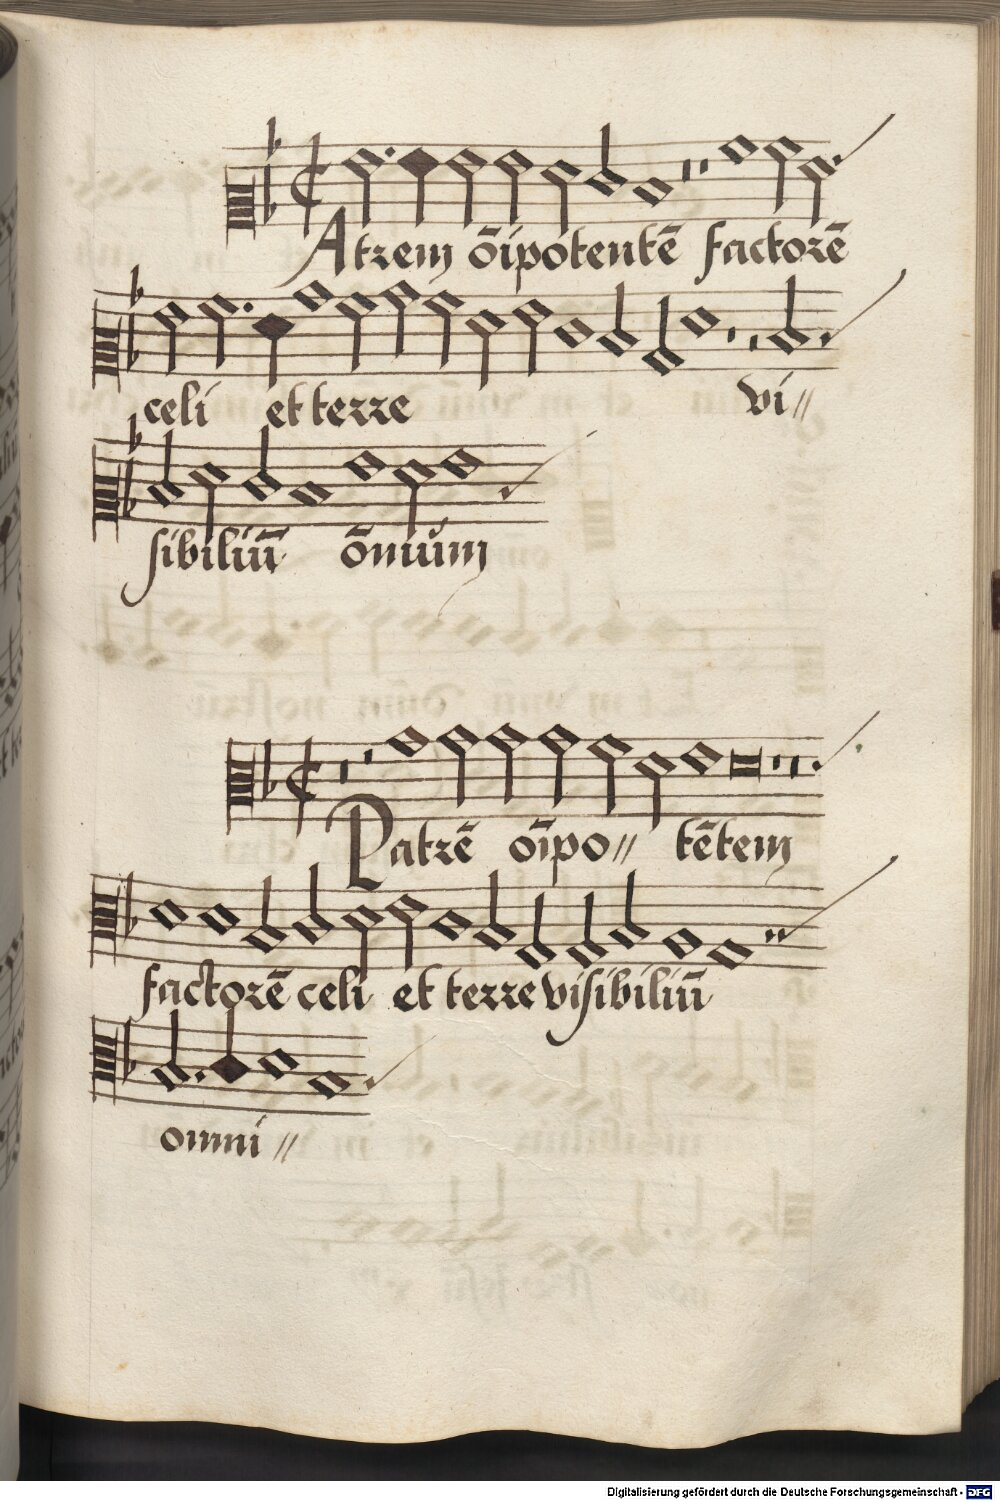 Atrem o̅ipotente̅ factore̅
celi et terre vi//
sibiliu̅ o̅nium
Patre̅ oi̅po// te̅tem
factore̅ celi et terre visibiliu̅
omni //
Digitalisierung gefördert durch die Deutsche Forschungsgemeinschaft - DFG